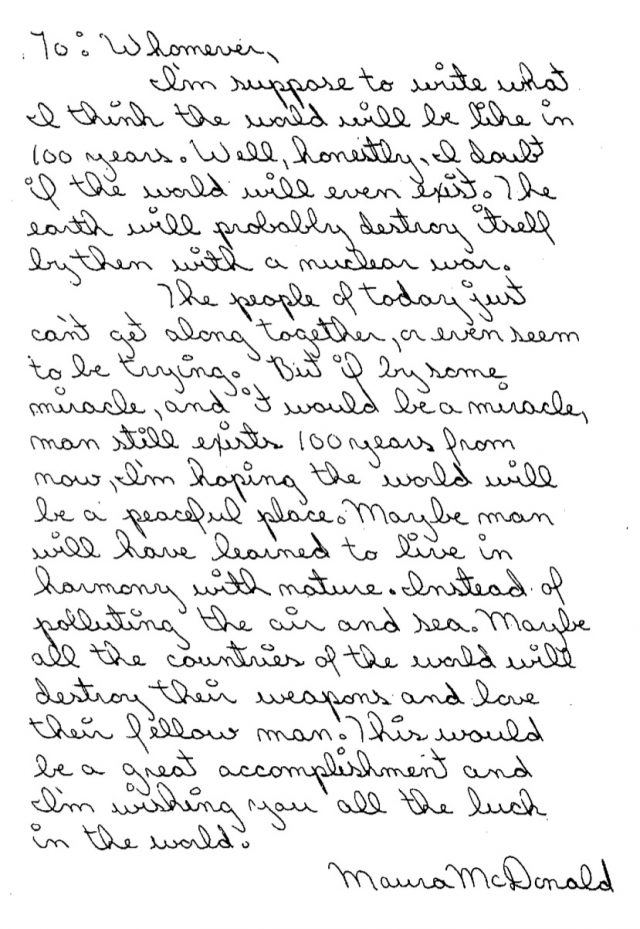 To: Whomever,
I'm suppose to write what
I think the world will be like in
100 years. Well, honestly, I doubt
if the world will even exist. The
earth will probably destroy itself
by then with a nuclear war.
The people of today just
can't get along together, or even seem
to be trying. But if by some
miracle, and it would be a miracle,
man still exists 100 years from
now, I'm hoping the world will
be a peaceful place. Maybe man
will have learned to live in
harmony with nature. Instead of
polluting the air and sea. Maybe
all the countries of the world will
destroy their weapons and love
their fellow man. This would
be a great accomplishment and
I'm wishing you all the luck
in the world.
Maura McDonald